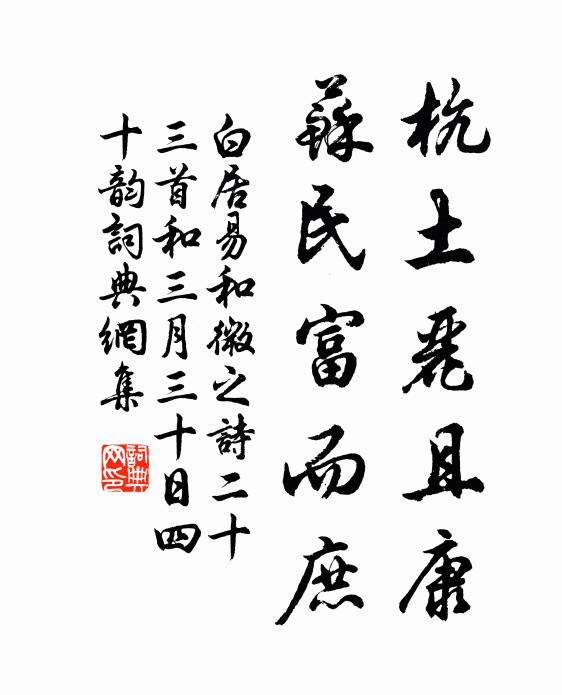 杭土麗且康
蘇民富而庶
白居易和微之詩二十
三首和三月三十日四
十韵詞典網集
詞典
网印